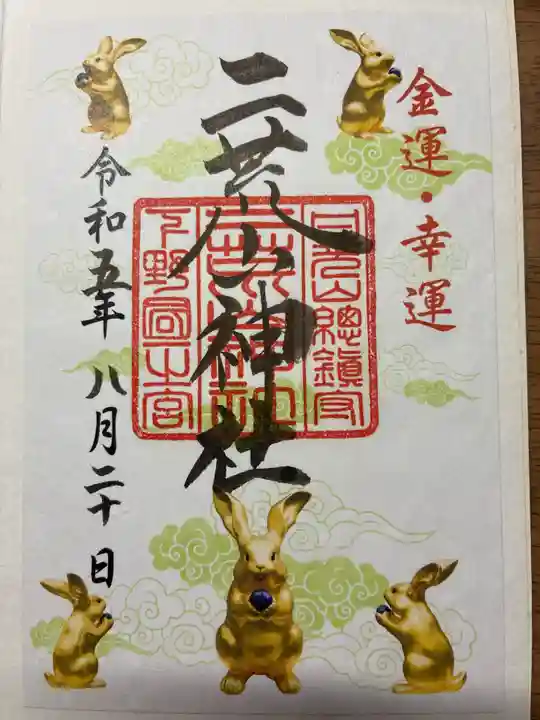 金運・幸運
二荒山神社
日光山總鎮守
二荒山神社
下野國一之宮
令和五年 八月二十日